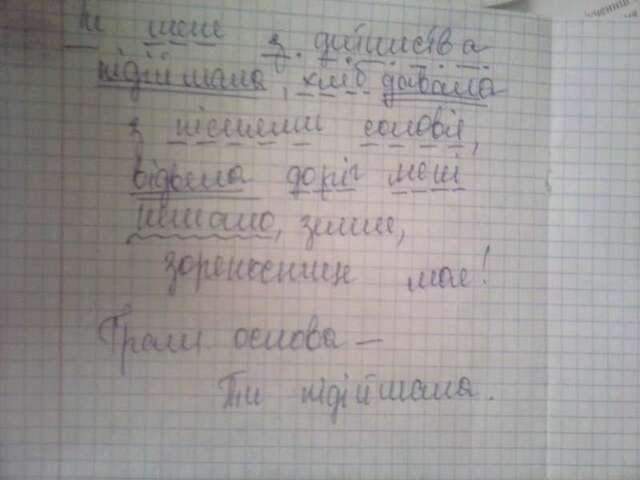 Ти мене з. дитинства
підіймала, хліб давала
з піснями солов'я,
відвела доріг мені
немало, земле,
зореносице моя!
Грам основа —
Ти підіймала.